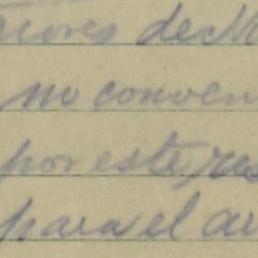 ciones de M
no conven
por este, res
para el ar